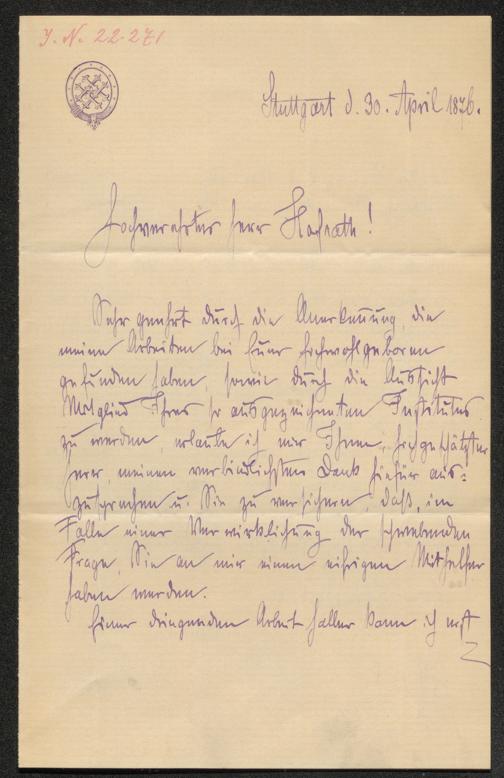 J. N. 22.271
Stuttgart d. 30. April 1876.
Hochverehrter Herr Hofrath!
Sehr geehrt durch die Anerkennung, die
meine Arbeiten bei Euer Hochwohlgeboren
gefunden haben, sowie durch die Aussicht
Mitglied Ihres so ausgezeichneten Institutes
zu werden, erlaube ich mir Ihnen, hochgeschätzter
Herr, meinen verbindlichsten Dank hiefür aus=
zusprechen u. Sie zu versichern, daß, im
Falle einer Verwirklichung der schwebenden
Frage, Sie an mir einen eifrigen Mithelfer
haben werden.
Einer dringenden Arbeit halber kann ich erst